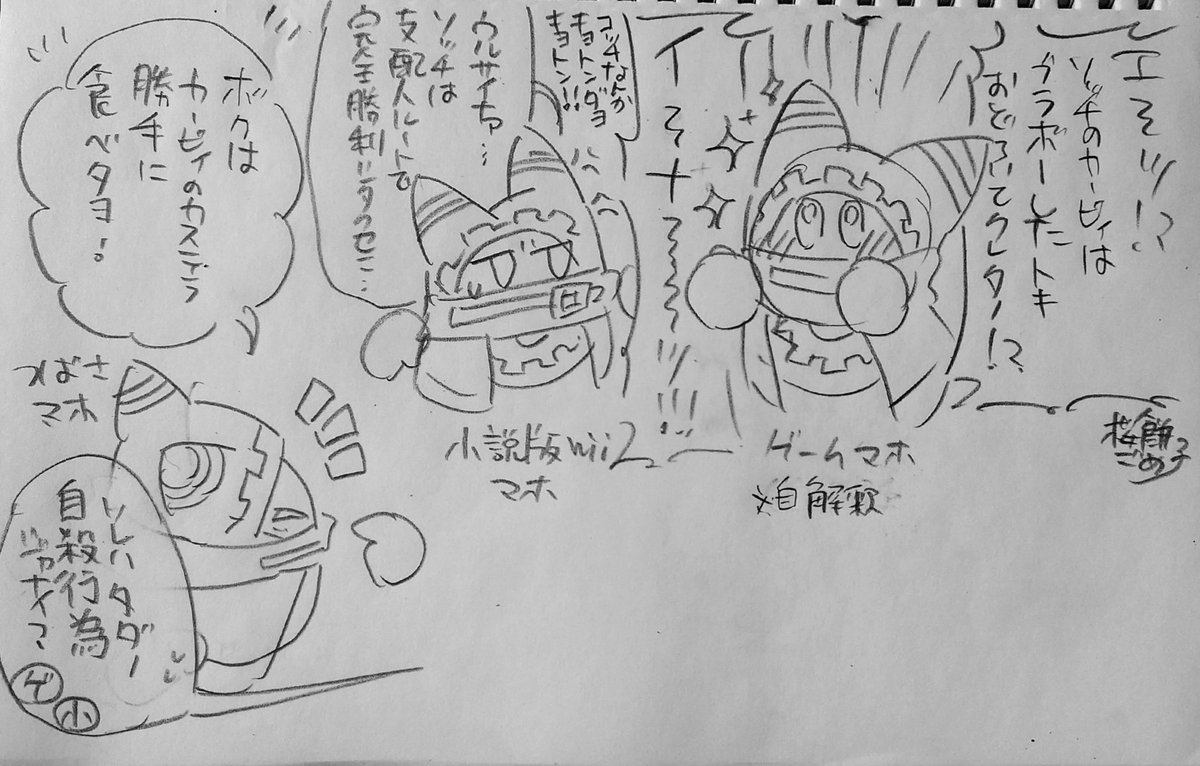 エそッ!?
ソッチのカービィは
ブラボーしたトキ
おどろいてクレター!?
イイナーーーッ!!!
コッチなんか
キョトンダヨ
キョトン!!
ウルサイな…
ソッチは
支配人ルートで
完全勝利シタクセに…
ボクは
カービィのカステラ
勝手に
食ベタヨ!
つばさ
マホ
小説版Wii
マホ
ゲームマホ
※自解釈
桜餅
ごめ子
ソレハタダノ
自殺行為
ジャナイ?
ゲ
小